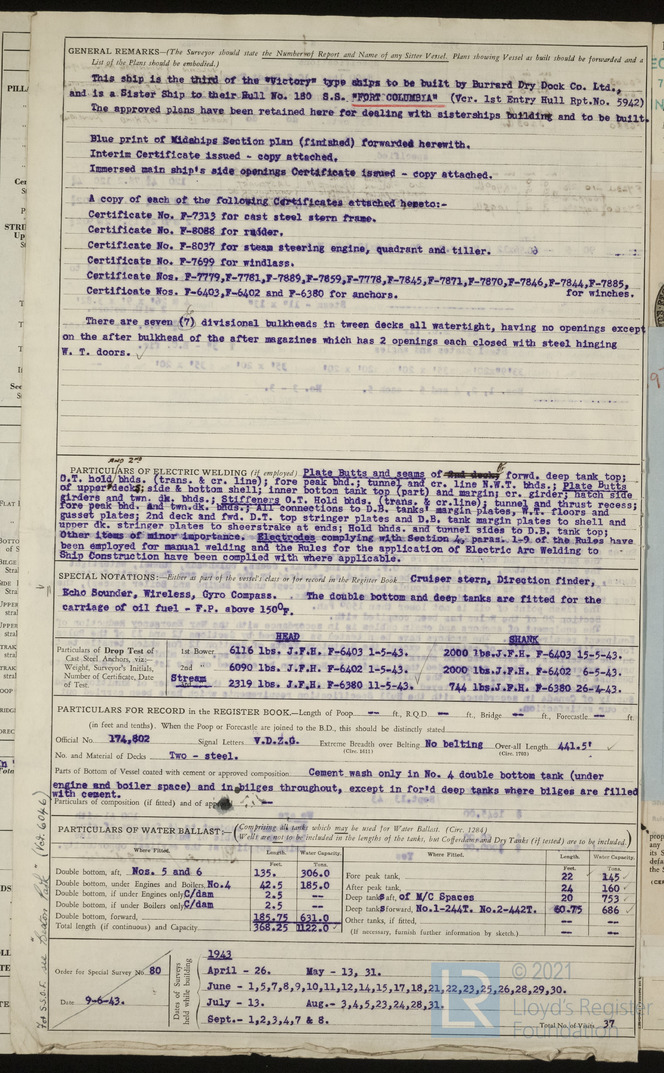 GENERAL REMARKS—(The Surveyor should state the Number of Report and Name of any Sister Vessel. Plans showing Vessel as built should be forwarded and a
List of the Plans should be embodied.)
This ship is the third of the "Victory" type ships to be built by Burrard Dry Dock Co. Ltd.,
and is a Sister Ship to their Hull No. 180 S.S. "FORT COLUMBIA" (Vcr. 1st Entry Hull Rpt.No. 5942)
The approved plans have been retained here for dealing with sisterships building and to be built.
Blue print of Midships Section plan (finished) forwarded herewith.
Interim Certificate issued - copy attached.
Immersed main ship's side openings Certificate issued - copy attached.
A copy of each of the following Certificates attached hereto:-
Certificate No. F-7313 for cast steel stern frame.
Certificate No. F-8088 for rudder.
Certificate No. F-8037 for steam steering engine, quadrant and tiller.
Certificate No. F-7699 for windlass.
Certificate Nos. F-7779,F-7781,F-7889,F-7859,F-7778,F-7845,F-7871,F-7870,F-7846,F-7844,F-7885,
for winches.
Certificate Nos. F-6403,F-6402 and F-6380 for anchors.
There are seven (7) divisional bulkheads in tween decks all watertight, having no openings except
on the after bulkhead of the after magazines which has 2 openings each closed with steel hinging
W. T. doors.
AND 2ND
PARTICULARS OF ELECTRIC WELDING (if employed) Plate Butts and seams of 2nd deck, forwd. deep tank top;
O.T. hold/bhds. (trans. & cr. line); fore peak bhd.; tunnel and cr. line N.W.T. bhds.; Plate Butts
of upper decks; side & bottom shell; inner bottom tank top (part) and margin; cr. girder; hatch side
girders and twn. dk. bhds.; Stiffeners O.T. Hold bhds. (trans. & cr.line); tunnel and thrust recess;
fore peak bhd. and twn.dk. bhds.; All connections to D.B. tanks' margin plates, W.T. floors and
gusset plates; 2nd deck and fwd. D.T. top stringer plates and D.B. tank margin plates to shell and
upper dk. stringer plates to sheerstrake at ends; Hold bhds. and tunnel sides to D.B. tank top;
Other items of minor importance. Electrodes complying with Section 4, paras. 1-9 of the Rules have
been employed for manual welding and the Rules for the application of Electric Arc Welding to
Ship Construction have been complied with where applicable.
SPECIAL NOTATIONS:—Either as part of the vessel's class or for record in the Register Book Cruiser stern, Direction finder,
Echo Sounder, Wireless, Gyro Compass. The double bottom and deep tanks are fitted for the
carriage of oil fuel - F.P. above 150°F.
HEAD SHANK
Particulars of Drop Test of Cast Steel Anchors, viz:— Weight, Surveyor's Initials, Number of Certificate, Date of Test.
1st Bower 6116 lbs. J.F.H. F-6403 1-5-43. 2000 lbs.J.F.H. F-6403 15-5-43.
2nd " 6090 lbs. J.F.H. F-6402 1-5-43. 2000 lbs.J.F.H. F-6402 6-5-43.
Stream 2319 lbs. J.F.H. F-6380 11-5-43. 744 lbs.J.F.H. F-6380 26-4-43.
PARTICULARS FOR RECORD in the REGISTER BOOK.—Length of Poop -- ft., R.Q.D. -- ft., Bridge -- ft., Forecastle -- ft
(in feet and tenths). When the Poop or Forecastle are joined to the B.D., this should be distinctly stated
Official No. 174,802 Signal Letters V.D.Z.G. Extreme Breadth over Belting No belting Over-all Length 441.5'
(Circ. 1611) (Circ. 1703)
No. and Material of Decks Two - steel.
Parts of Bottom of Vessel coated with cement or approved composition Cement wash only in No. 4 double bottom tank (under
engine and boiler space) and in bilges throughout, except in for'd deep tanks where bilges are filled
with cement.
Particulars of composition (if fitted) and of --
PARTICULARS OF WATER BALLAST:—(Comprising all tanks which may be used for Water Ballast. (Circ. 1284)
Wells are not to be included in the lengths of the tanks, but Cofferdams and Dry Tanks (if tested) are to be included.)
Where Fitted. Length. Water Capacity. Where Fitted. Length. Water Capacity.
Feet. Tons. Feet. Tons.
Double bottom, aft, Nos. 5 and 6 135. 306.0 Fore peak tank, 22 145
Double bottom, under Engines and Boilers, No.4 42.5 185.0 After peak tank, 24 160
Double bottom, if under Engines only, C/dam 2.5 -- Deep tanks aft, of M/C Spaces 20 753
Double bottom, if under Boilers only, C/dam 2.5 -- Deep tanks forward, No.1-244T. No.2-442T. 60.75 686
Double bottom, forward, 185.75 631.0 Other tanks, if fitted, -- --
Total length (if continuous) and Capacity 368.25 1122.0 (If necessary, furnish further information by sketch.) -- --
Order for Special Survey No. 80
Date 9-6-43.
Dates of Surveys held while building
1943
April - 26. May - 13, 31.
June - 1,5,7,8,9,10,11,12,14,15,17,18,21,22,23,25,26,28,29,30.
July - 13. Aug.- 3,4,5,23,24,28,31.
Sept.- 1,2,3,4,7 & 8.
Total No. of Visits 37
© 2021
Lloyd's Register
Foundation
LR